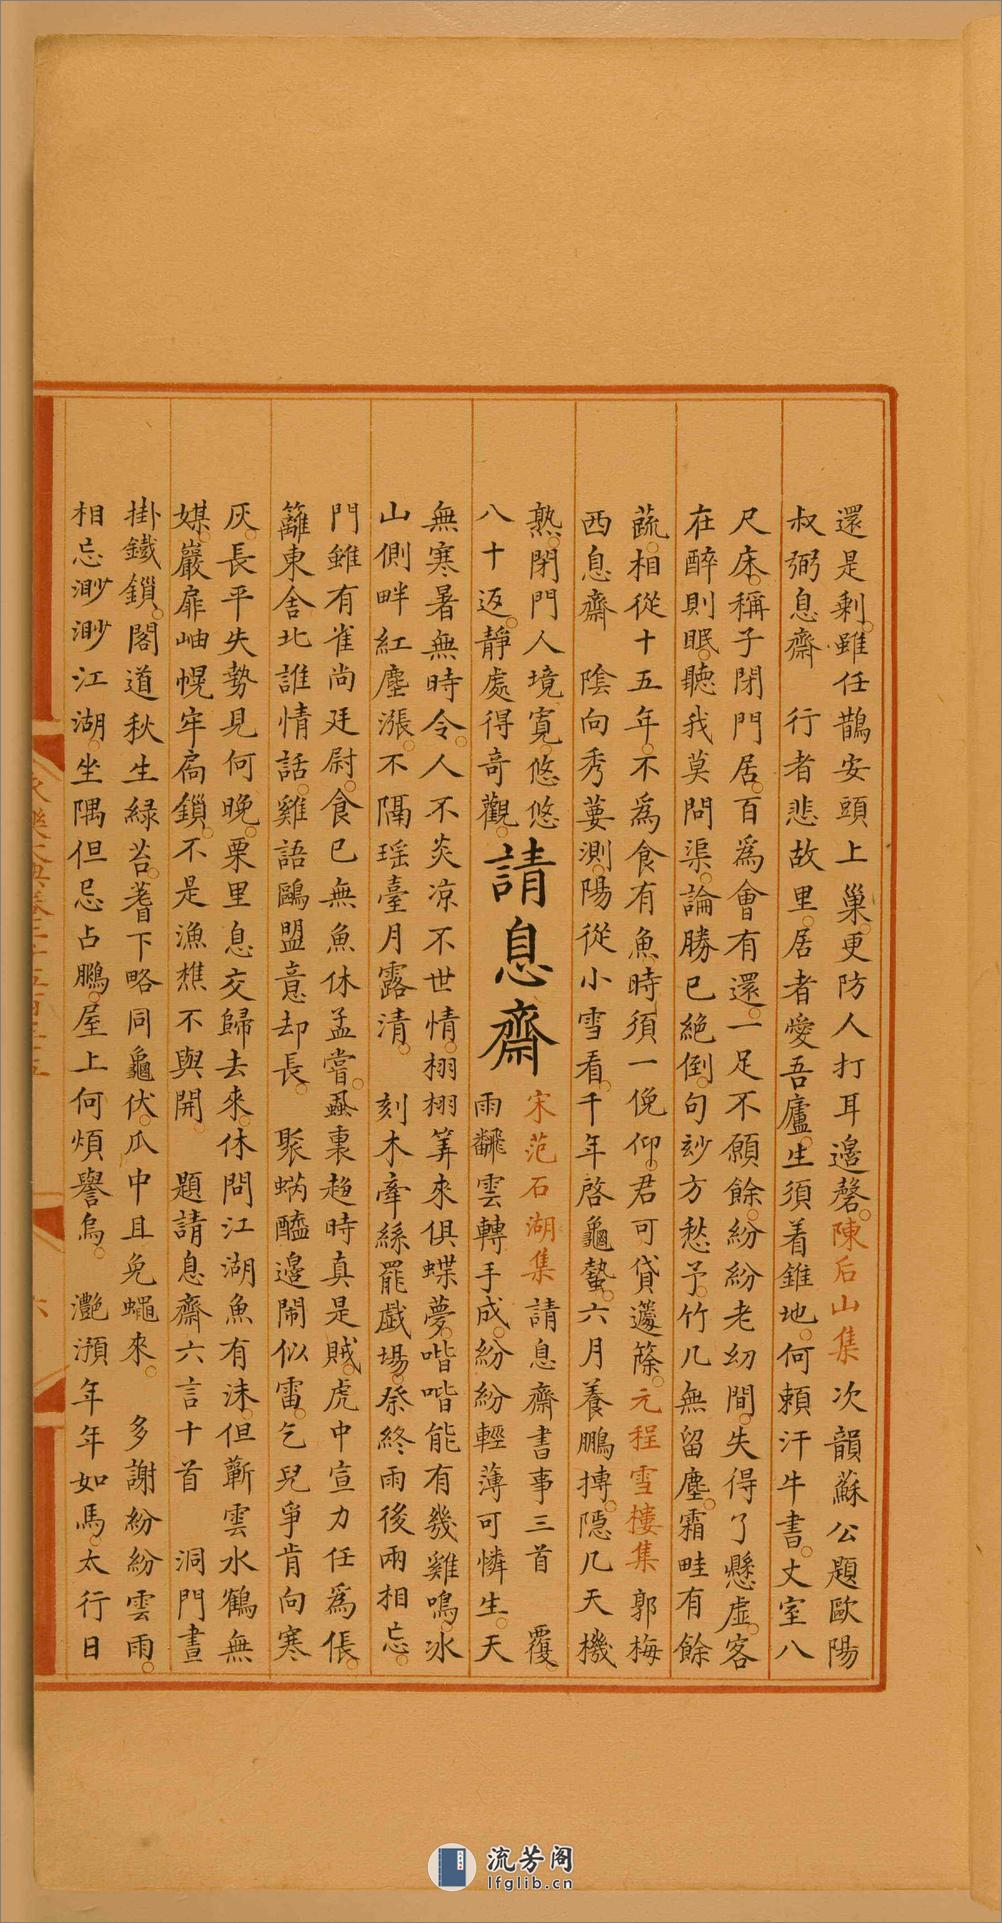 還是剩。雖任鵲安頭上巢。更防人打耳邊磬。陳后山集 次韻蘇公題歐陽
叔弼息齋 行者悲故里。居者愛吾廬。生須着錐地。何賴汗牛書。丈室八
尺床。稱子閉門居。百爲會有還。一足不願餘。紛紛老幼間。失得了懸虛。客
在醉則眠。聽我莫問渠。論勝已絕倒。句妙方愁予。竹几無留塵。霜畦有餘
蔬。相從十五年。不爲食有魚。時須一俛仰。君可貸蘧篨。元程雪樓集 郭梅
西息齋 陰向秀葽測。陽從小雪看。千年啓龜蟄。六月養鵬摶。隱几天機
熟。閉門人境寬。悠悠
八十返。靜處得奇觀。
請息齋
宋范石湖集 請息齋書事三首 覆
雨飜雲轉手成。紛紛輕薄可憐生。天
無寒暑無時令。人不炎凉不世情。栩栩筭來俱蝶夢。喈喈能有幾雞鳴。冰
山側畔紅塵漲。不隔瑶臺月露清。 刻木牽絲罷戲場。祭終雨後兩相忘。
門雖有雀尚廷尉。食已無魚休孟嘗。蝨裏趍時真是賊。虎中宣力任爲倀。
籬東舍北誰情話。雞語鷗盟意却長。 聚蜹醯邊鬧似雷。乞兒爭肯向寒
灰。長平失勢見何晚。栗里息交歸去來。休問江湖魚有沬。但蘄雲水鶴無
媒。巖扉岫幌牢扃鎖。不是漁樵不與開。 題請息齋六言十首 洞門晝
掛鐵鎖。閣道秋生緑苔。耆下略同龜伏。瓜中且免蠅來。 多謝紛紛雲雨。
相忘渺渺江湖。坐隅但忌占鵬。屋上何煩譽烏。 灩澦年年如馬。太行日
流芳阁
lfglib.cn